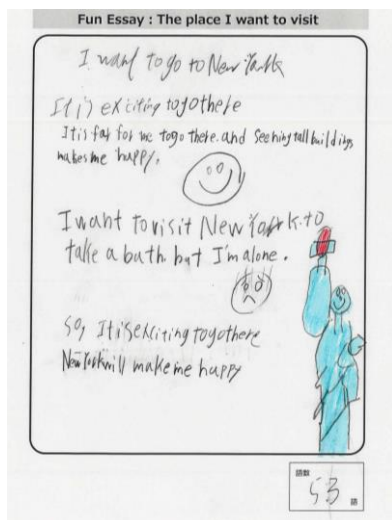 Fun Essay : The place I want to visit
I want to go to New York
It is exciting to go there
It is far for me to go there. and seeing tall buildings
makes me happy.
I want to visit New York. to
take a bath but I'm alone.
so, It is exciting to go there
New York will make me happy
語数
53 語